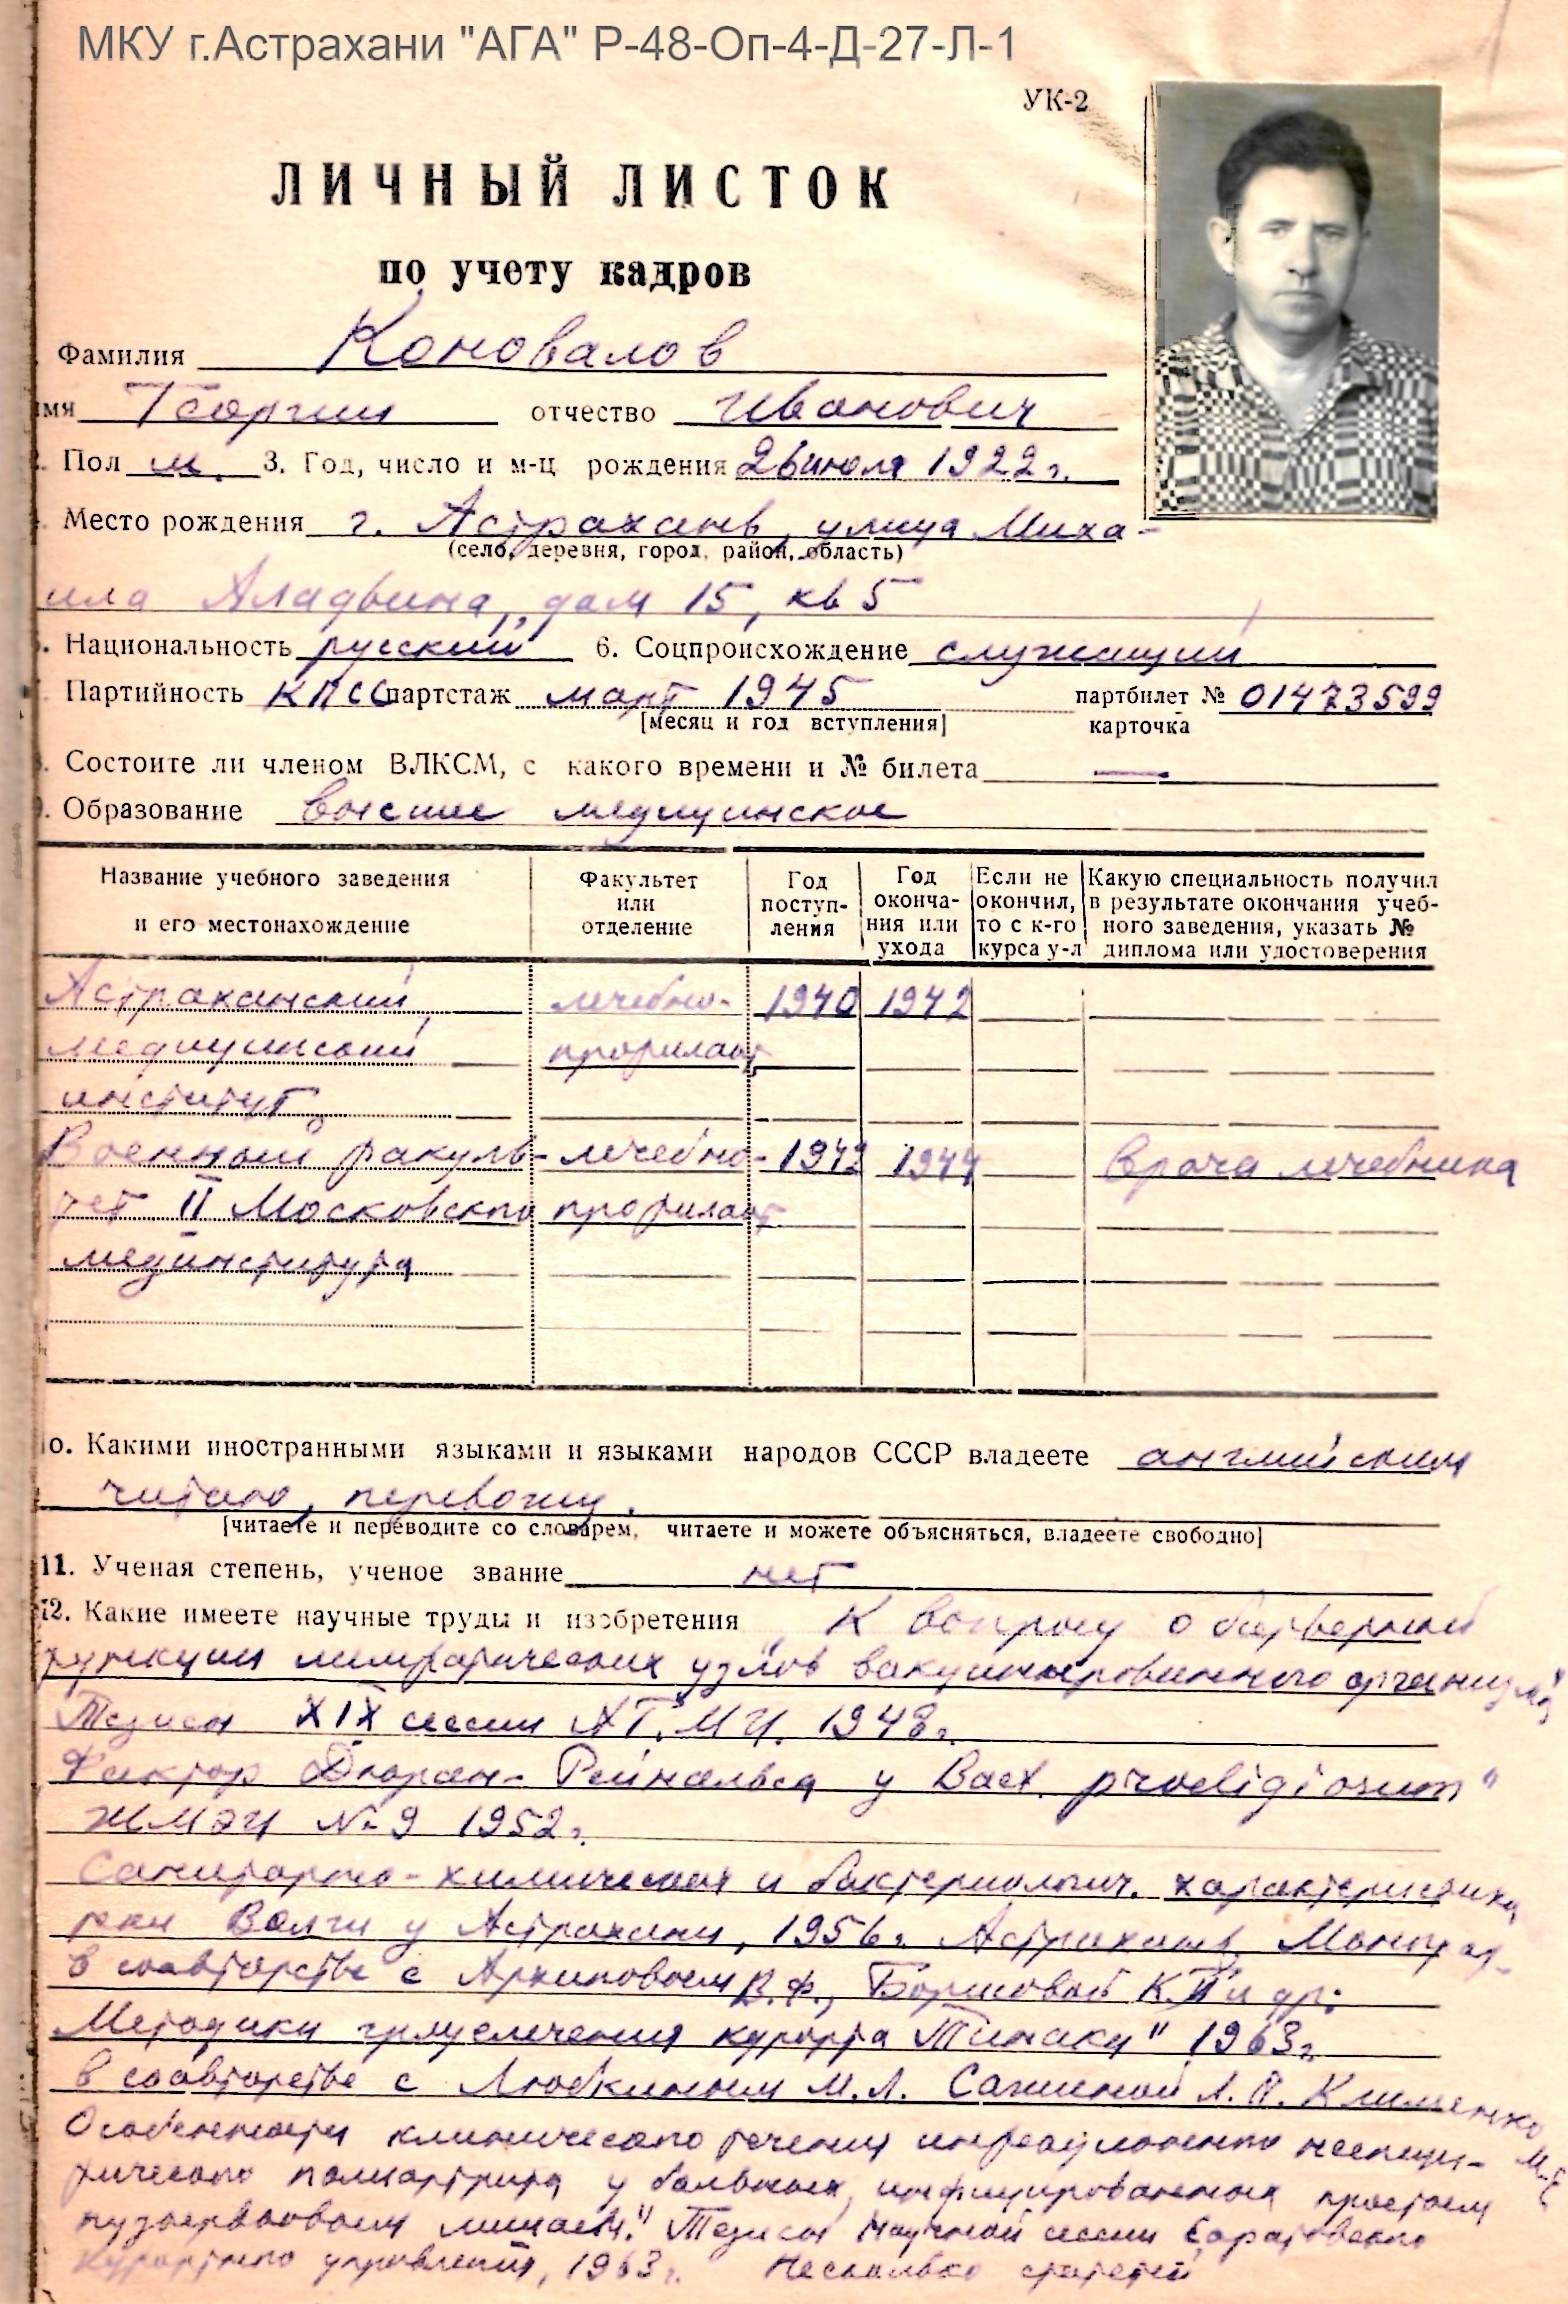 МКУ г.Астрахани "АГА" Р-48-Оп-4-Д-27-Л-1
УК-2
ЛИЧНЫЙ ЛИСТОК
по учету кадров
Фамилия Коновалов
имя Георгий отчество Иванович
Пол м. 3. Год, число и м-ц рождения 26 июля 1922 г.
Место рождения г. Астрахань, улица Миха-
(село, деревня, город, район, область)
ила Аладьина, дом 15, кв 5
Национальность русский 6. Соцпроисхождение служащий
Партийность КПСС партстаж март 1945 партбилет № 01473599
[месяц и год вступления] карточка
Состоите ли членом ВЛКСМ, с какого времени и № билета —
Образование высшее медицинское
Название учебного заведения и его местонахождение
Факультет или отделение
Год поступ-ления
Год оконча-ния или ухода
Если не окончил, то с к-го курса у-л
Какую специальность получил в результате окончания учеб-ного заведения, указать № диплома или удостоверения
Астраханский лечебно- 1940 1942
медицинский профилакт
институт
Военный факуль- лечебно- 1942 1944 врача лечебника
тет II Московского профилакт
мединститута
10. Какими иностранными языками и языками народов СССР владеете английским
читаю, перевожу.
[читаете и переводите со словарем, читаете и можете объясняться, владеете свободно]
11. Ученая степень, ученое звание нет
12. Какие имеете научные труды и изобретения К вопросу о барьерной
функции лимфатических узлов вакцинированного организма"
Тезисы XIX сессии АГМИ. 1948 г.
Фактор Дюран-Рейнальса у Bact. prodigiosum"
ЖМЭИ № 9 1952 г.
Санитарно-химическая и бактериологич. характеристика
реки Волги у Астрахани, 1956 г. Астрахань,
в соавторстве с Архиповым В.Ф., Борисовой К.П и др.
Методики грязелечения курорта Тинаки" 1963 г.
в соавторстве с Любкиным М.Л. Сажиной Л.П. Клименко М.Е
Особенности клинического течения инфекционного неспеци-
фического полиартрита у больных, инфицированных простым
пузырьковым лишаем." Тезисы научной сессии Саратовского
курортного управления, 1963 г. Несколько статей